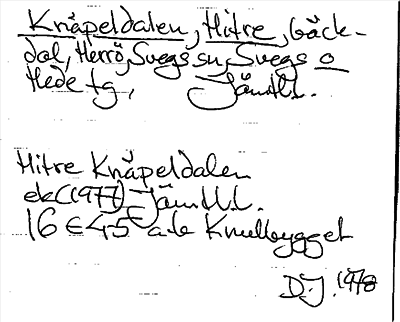 Knåpeldalen, Hitre, bäck-
dal, Herrö, Svegs sn, Svegs o
Hede tg, Jämtl.
Hitre Knåpeldalen
ek(1977) Jämtl.l.
16 E 45
D.J. 1978